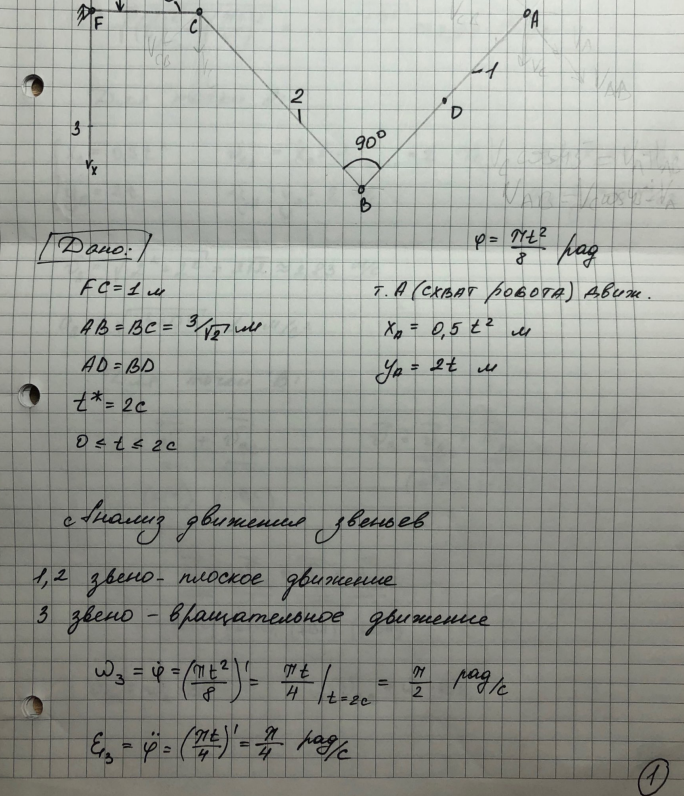 F
C
A
2
1
D
3
90°
B
Дано:
φ = πt²/8 рад
FC = 1 м
т. A (СХВАТ РОБОТА) движ.
AB = BC = 3/√2 м
x_A = 0,5 t² м
AD = BD
y_A = 2t м
t* = 2c
0 ≤ t ≤ 2c
Анализ движения звеньев
1,2 звено - плоское движение
3 звено - вращательное движение
ω₃ = φ̇ = (πt²/8)' = πt/4 |t=2c = π/2 рад/с
ε₃ = φ̈ = (πt/4)' = π/4 рад/с
1